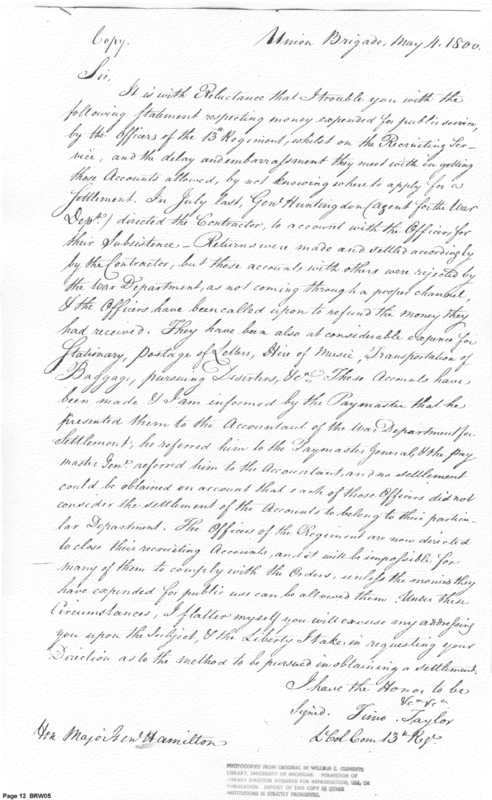 Copy.
Union Brigade, May 4. 1800.
Sir,
It is with Reluctance that I trouble you with the
following Statement respecting money expended for public service,
by the Officers of the 13th Regiment, whilst on the Recruiting Ser-
vice, and the delay and embarrassment they meet with in getting
those Accounts allowed, by not knowing where to apply for a
Settlement. In July last, Genl Huntingdon (Agent for the War
Dept) directed the Contractor, to account with the Officers for
their Subsistence – Returns were made and settled accordingly
by the Contractor, but those accounts with others were rejected by
the War Department, as not coming through a proper channel,
& the Officers have been called upon to refund the money they
had received. They have been also at considerable expence for
Stationary, Postage of Letters, Hire of Music, Transportation of
Baggage, pursuing Deserters, &ca. Those Accounts have
been made & I am informed by the Paymaster that he
presented them to the Accountant of the War Department for
Settlement; he referred him to the Paymaster General, & the Pay
master Genl referred him to the Accountant and no settlement
could be obtained on account that each of those Officers did not
consider the settlement of the Accounts to belong to their particu-
lar Department. The Officers of the Regiment are now directed
to close their recruiting Accounts, and it will be impossible for
many of them to comply with the Orders, unless the monies they
have expended for public use can be allowed them. Under these
Circumstances, I flatter myself you will excuse my addressing
you upon the Subject, & the Liberty I take in requesting your
Direction as to the method to be pursued in obtaining a settlement.
I have the Honor to be
&ca &ca
Signed. Timo Taylor
Lt Col Com 13th Regt
Hon Major Genl Hamilton
PHOTOCOPIED FROM ORIGINAL IN WILLIAM L. CLEMENTS
LIBRARY, UNIVERSITY OF MICHIGAN. PERMISSION OF
LIBRARY DIRECTOR REQUIRED FOR REPRODUCTION, USE, OR
PUBLICATION. DEPOSIT OF THIS COPY IN OTHER
INSTITUTIONS IS STRICTLY PROHIBITED.
Page 12 BRW05